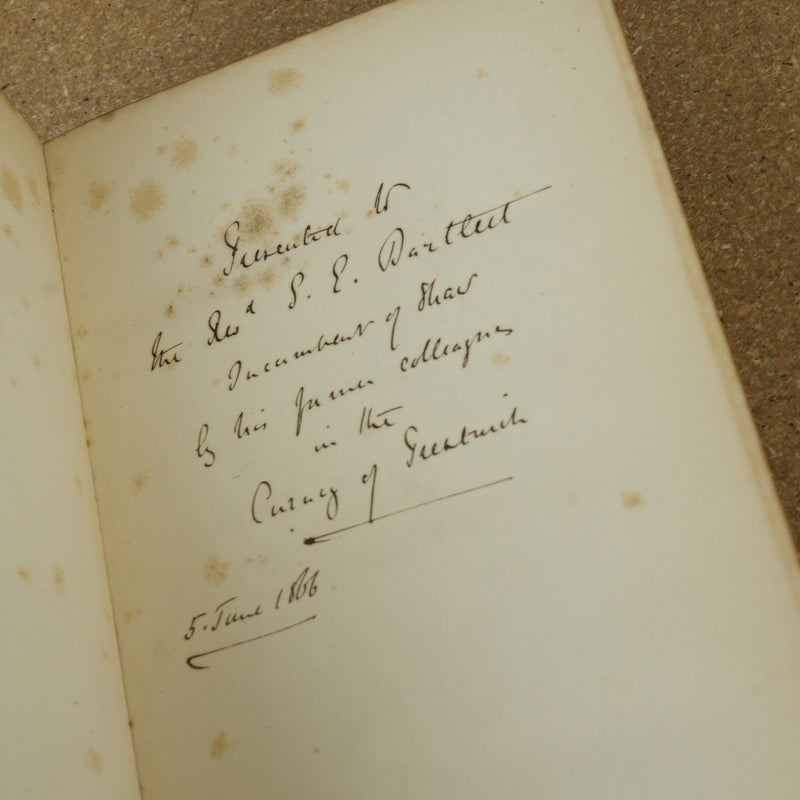 Presented to
the Revd S. E. Bartleet
Incumbent of Shaw
by his former colleagues
in the
Curacy of Greenwich
5. June 1866